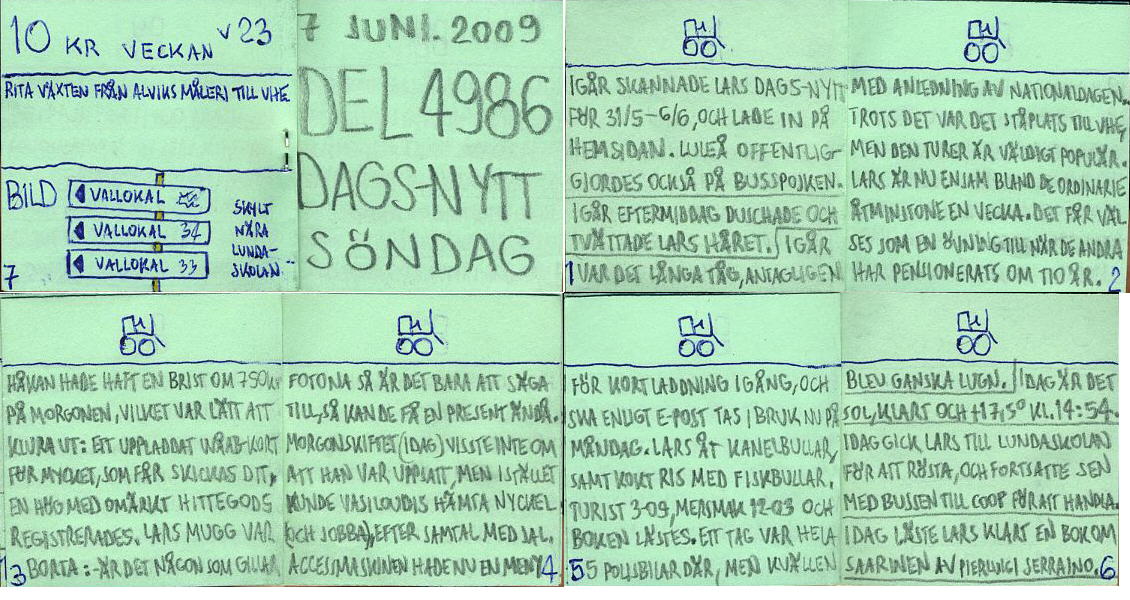 10 KR VECKAN v 23
RITA VÄXTEN FRÅN ALVIKS MÅLERI TILL VHE
BILD
VALLOKAL
VALLOKAL 34
VALLOKAL 33
SKYLT
NÄRA
LUNDA-
SKOLAN
7
7 JUNI. 2009
DEL 4986
DAGS-NYTT
SÖNDAG
IGÅR SKANNADE LARS DAGS-NYTT
FÖR 31/5-6/6, OCH LADE IN PÅ
HEMSIDAN. LULEÅ OFFENTLIG-
GJORDES OCKSÅ PÅ BUSSPOJKEN.
IGÅR EFTERMIDDAG DUSCHADE OCH
TVÄTTADE LARS HÅRET. IGÅR
VAR DET LÅNGA TÅG, ANTAGLIGEN
1
MED ANLEDNING AV NATIONALDAGEN.
TROTS DET VAR DET STÅPLATS TILL VHE,
MEN DEN TUREN ÄR VÄLDIGT POPULÄR.
LARS ÄR NU ENSAM BLAND DE ORDINARIE
ÅTMINSTONE EN VECKA. DET FÅR VÄL
SES SOM EN ÖVNING TILL NÄR DE ANDRA
HAR PENSIONERATS OM TIO ÅR.
2
HÅKAN HADE HAFT EN BRIST OM 750KR
PÅ MORGONEN, VILKET VAR LÄTT ATT
KLURA UT: ETT UPPLADDAT WÅAB-KORT
FÖR MYCKET, SOM FÅR SKICKAS DIT,
EN HÖG MED OMÄRKT HITTEGODS
REGISTRERADES. LARS MUGG VAR
BORTA: -ÄR DET NÅGON SOM GILLAR
3
FOTONA SÅ ÄR DET BARA ATT SÄGA
TILL, SÅ KAN DE FÅ EN PRESENT ÄNDÅ.
MORGONSKIFTET (IDAG) VISSTE INTE OM
ATT HAN VAR UPPSATT, MEN ISTÄLLET
KUNDE VASILOUDIS HÄMTA NYCKEL
(OCH JOBBA), EFTER SAMTAL MED JAL.
ACCESSMASKINEN HADE NU EN MENY
4
FÖR KORTLADDNING IGÅNG, OCH
SKA ENLIGT E-POST TAS I BRUK NU PÅ
MÅNDAG. LARS ÅT KANELBULLAR,
SAMT KOKT RIS MED FISKBULLAR.
TURIST 3-09, MERSMAK 12-03 OCH
BOKEN LÄSTES. ETT TAG VAR HELA
5 POLISBILAR DÄR, MEN KVÄLLEN
5
BLEV GANSKA LUGN. IDAG ÄR DET
SOL, KLART OCH +17,5° KL.14:54.
IDAG GICK LARS TILL LUNDASKOLAN
FÖR ATT RÖSTA, OCH FORTSATTE SEN
MED BUSSEN TILL COOP FÖR ATT HANDLA.
IDAG LÄSTE LARS KLART EN BOK OM
SAARINEN AV PIERLUIGI SERRAINO.
6